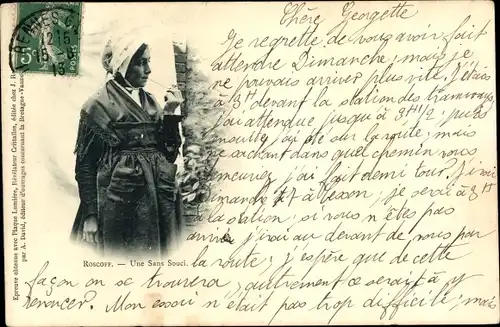 Chère Georgette
Je regrette de vous avoir fait
attendre Dimanche; mais je
ne pouvais arriver plus vite. J'étais
à 3h devant la station des tramways
j'ai attendue jusqu'à 3h 1/2; puis
j'ai été sur la route; mais
ne sachant dans quel chemin vous
j'ai fait demi tour.
dimanche je serai à 3h
à la station; si vous n'êtes pas
arrivée j'irai au devant de vous par
la route; j'espère que de cette
façon on se trouvera, autrement ce serait à y
renoncer. Mon essai n'était pas trop difficile; mais
ROSCOFF. — Une Sans Souci.
Epreuve obtenue avec Plaque Lumière, Révélateur Cristallos, éditée chez J.
par A. David, éditeur d'ouvrages concernant la Bretagne
RENNES
12 15
13
5
POSTES